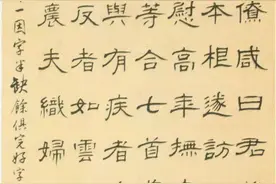 僚咸曰君
本根遂訪
慰高年撫
等合七首
與有疾者
反者如雲
農夫織婦
一因字半缺餘俱完好字